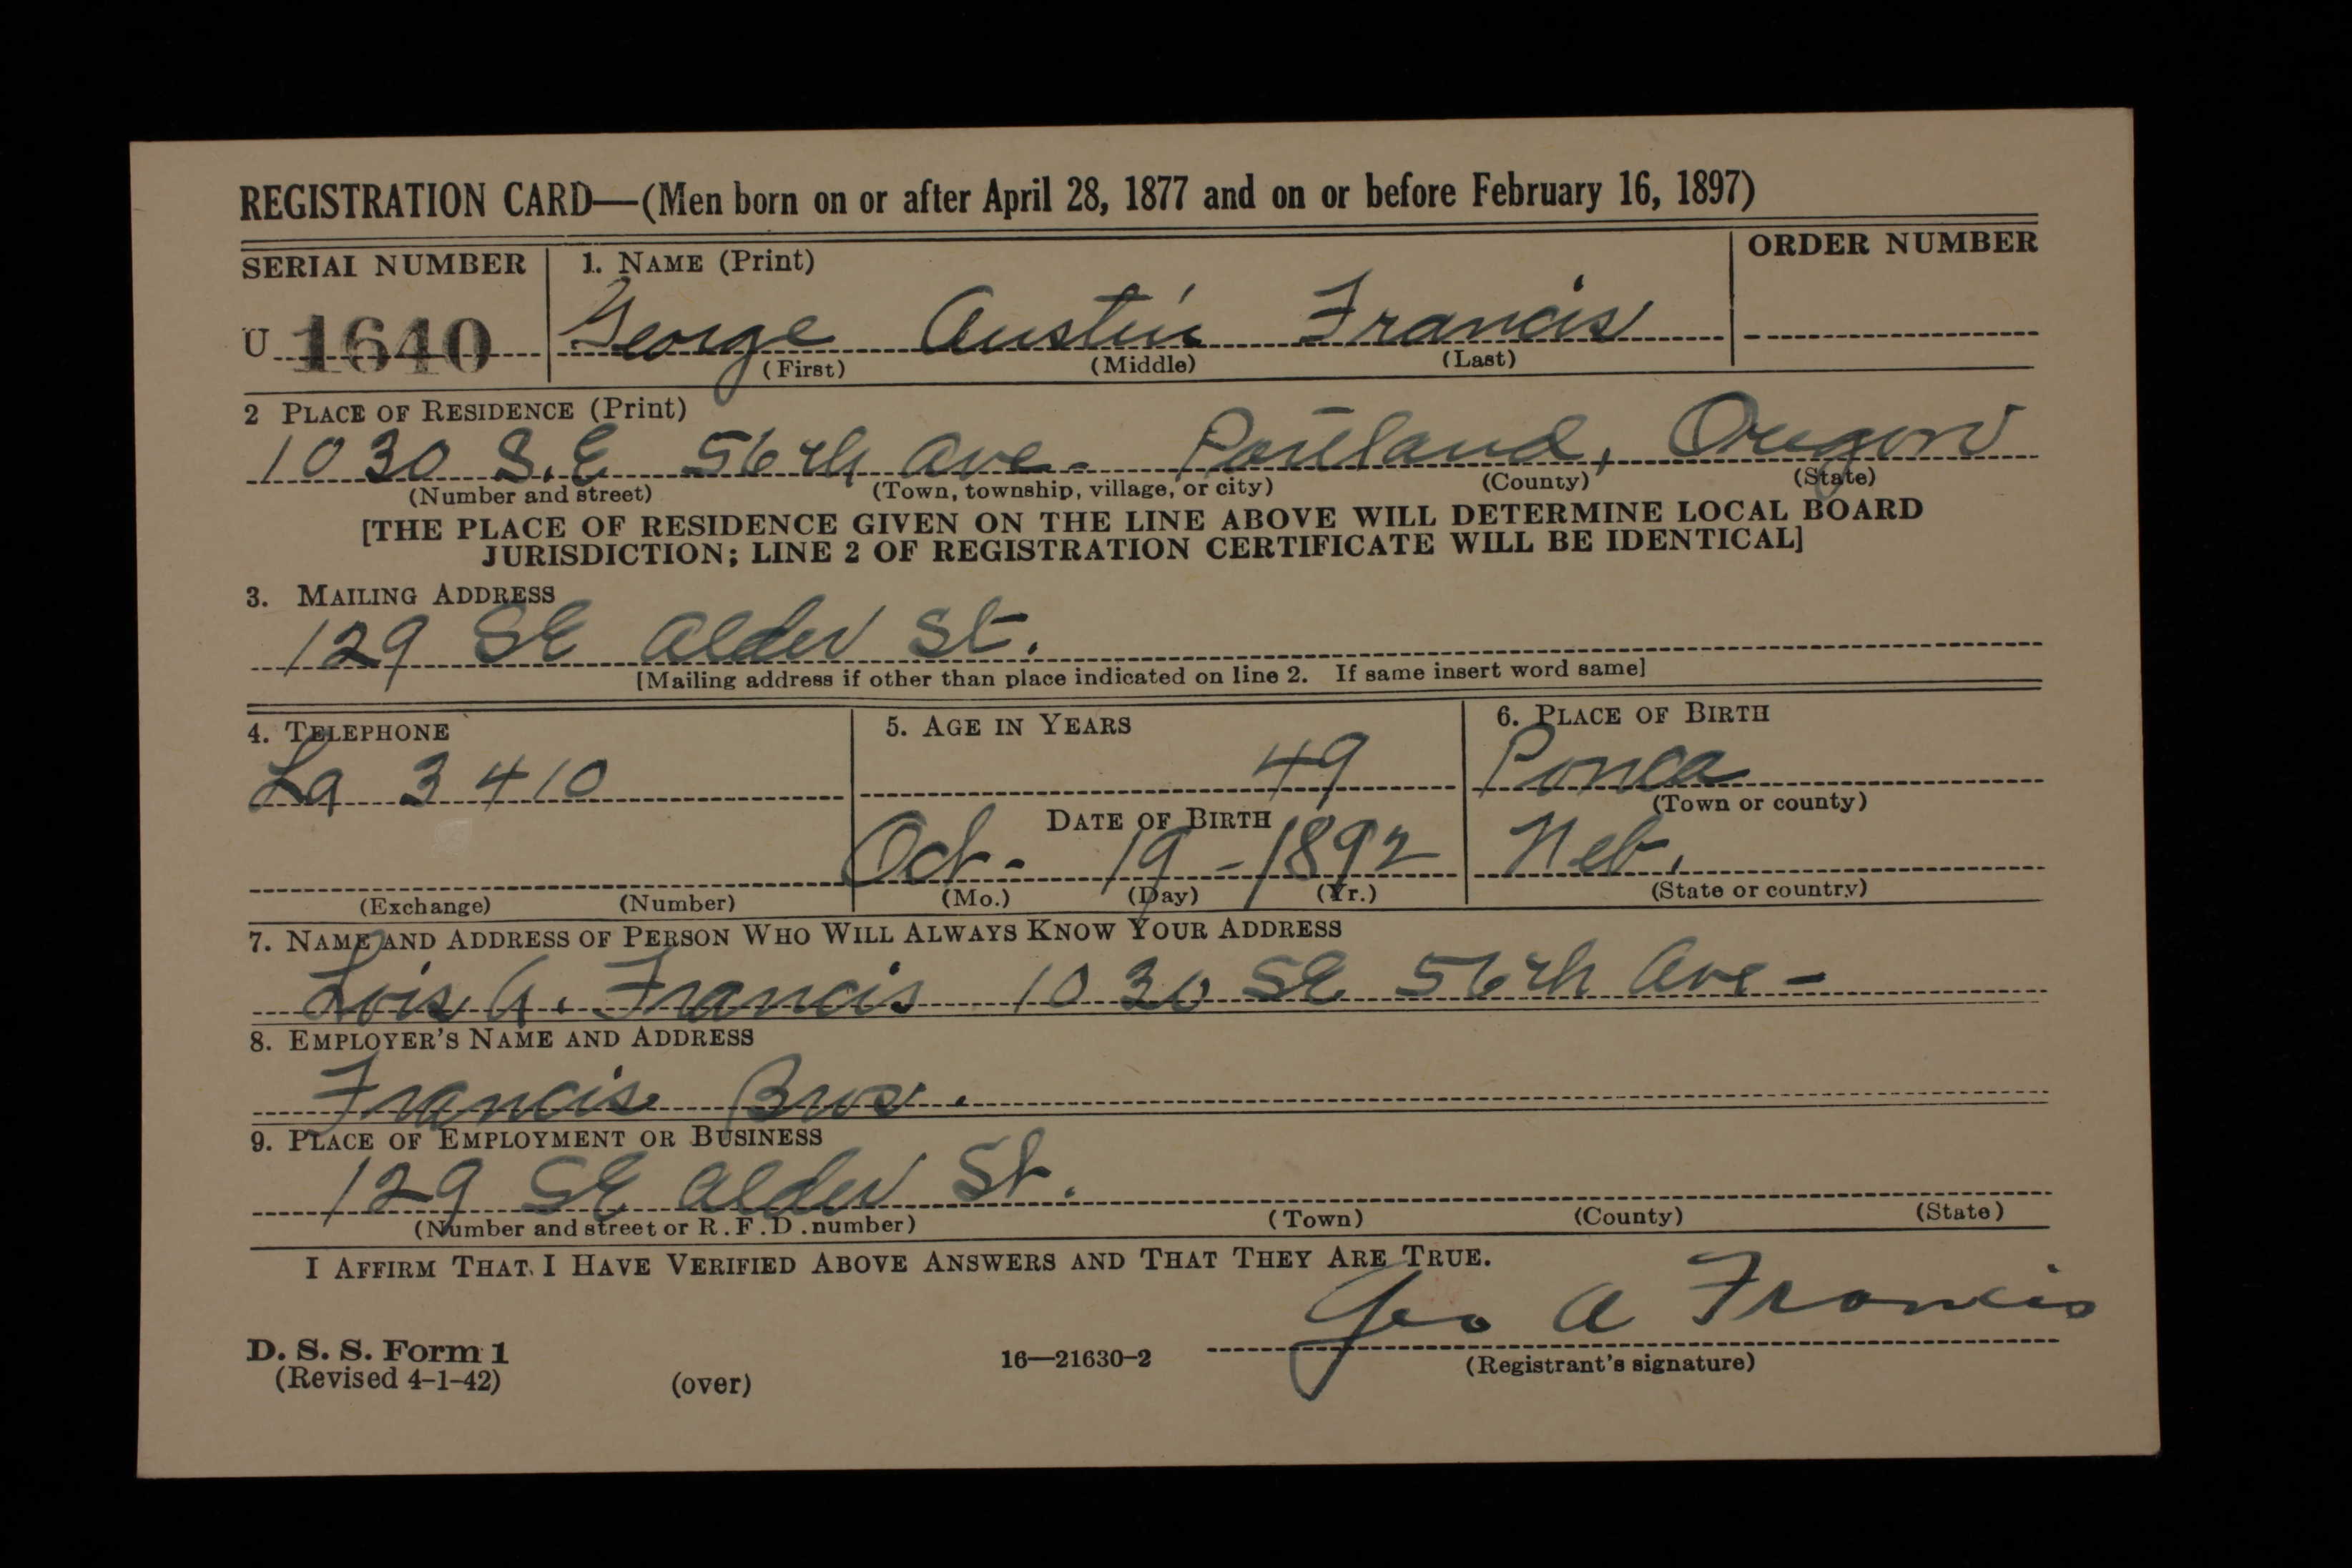 REGISTRATION CARD—(Men born on or after April 28, 1877 and on or before February 16, 1897)
SERIAL NUMBER 1. NAME (Print) ORDER NUMBER
U 1640 George Austin Francis
(First) (Middle) (Last)
2 PLACE OF RESIDENCE (Print)
1030 S.E 56th Ave- Portland, Oregon
(Number and street) (Town, township, village, or city) (County) (State)
[THE PLACE OF RESIDENCE GIVEN ON THE LINE ABOVE WILL DETERMINE LOCAL BOARD
JURISDICTION; LINE 2 OF REGISTRATION CERTIFICATE WILL BE IDENTICAL]
3. MAILING ADDRESS
129 SE Alder St.
[Mailing address if other than place indicated on line 2. If same insert word same]
4. TELEPHONE 5. AGE IN YEARS 6. PLACE OF BIRTH
La 3410 49 Ponca
DATE OF BIRTH (Town or county)
Oct- 19-1892 Neb.
(Exchange) (Number) (Mo.) (Day) (Yr.) (State or country)
7. NAME AND ADDRESS OF PERSON WHO WILL ALWAYS KNOW YOUR ADDRESS
Lois G. Francis 1030 SE 56th Ave-
8. EMPLOYER'S NAME AND ADDRESS
Francis Bros.
9. PLACE OF EMPLOYMENT OR BUSINESS
129 SE Alder St.
(Number and street or R.F.D. number) (Town) (County) (State)
I AFFIRM THAT I HAVE VERIFIED ABOVE ANSWERS AND THAT THEY ARE TRUE.
Geo A Francis
D. S. S. Form 1
(Revised 4-1-42) (over) 16—21630-2 (Registrant's signature)